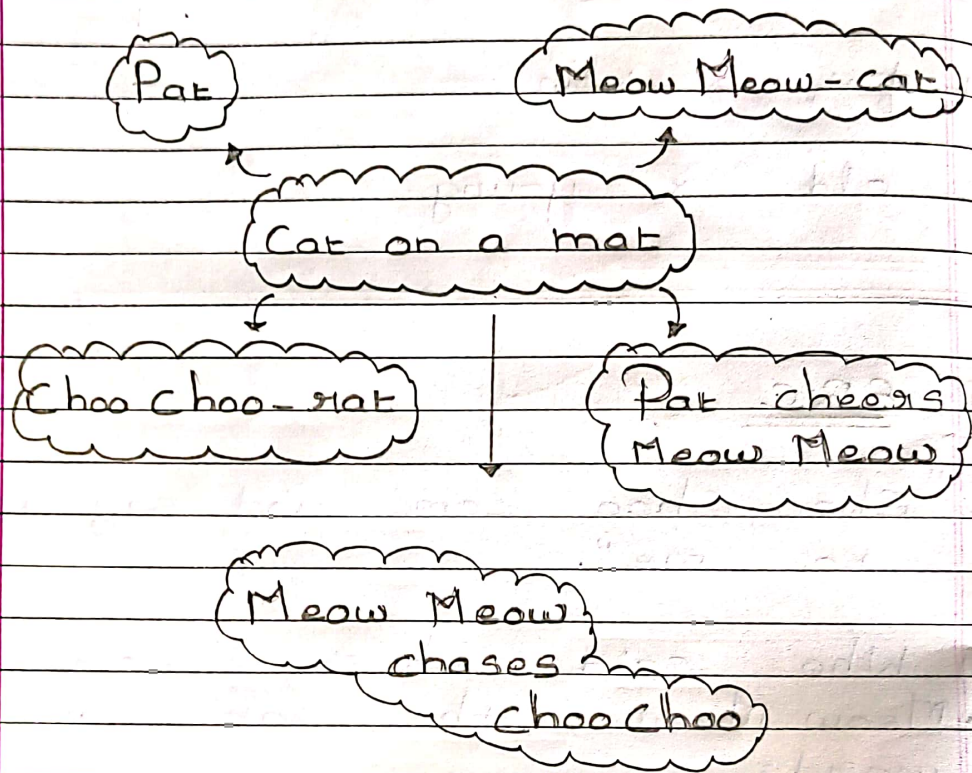 Pat
Meow Meow - cat
Cat on a mat
Choo Choo - rat
Pat cheers
Meow Meow
Meow Meow
chases
Choo Choo